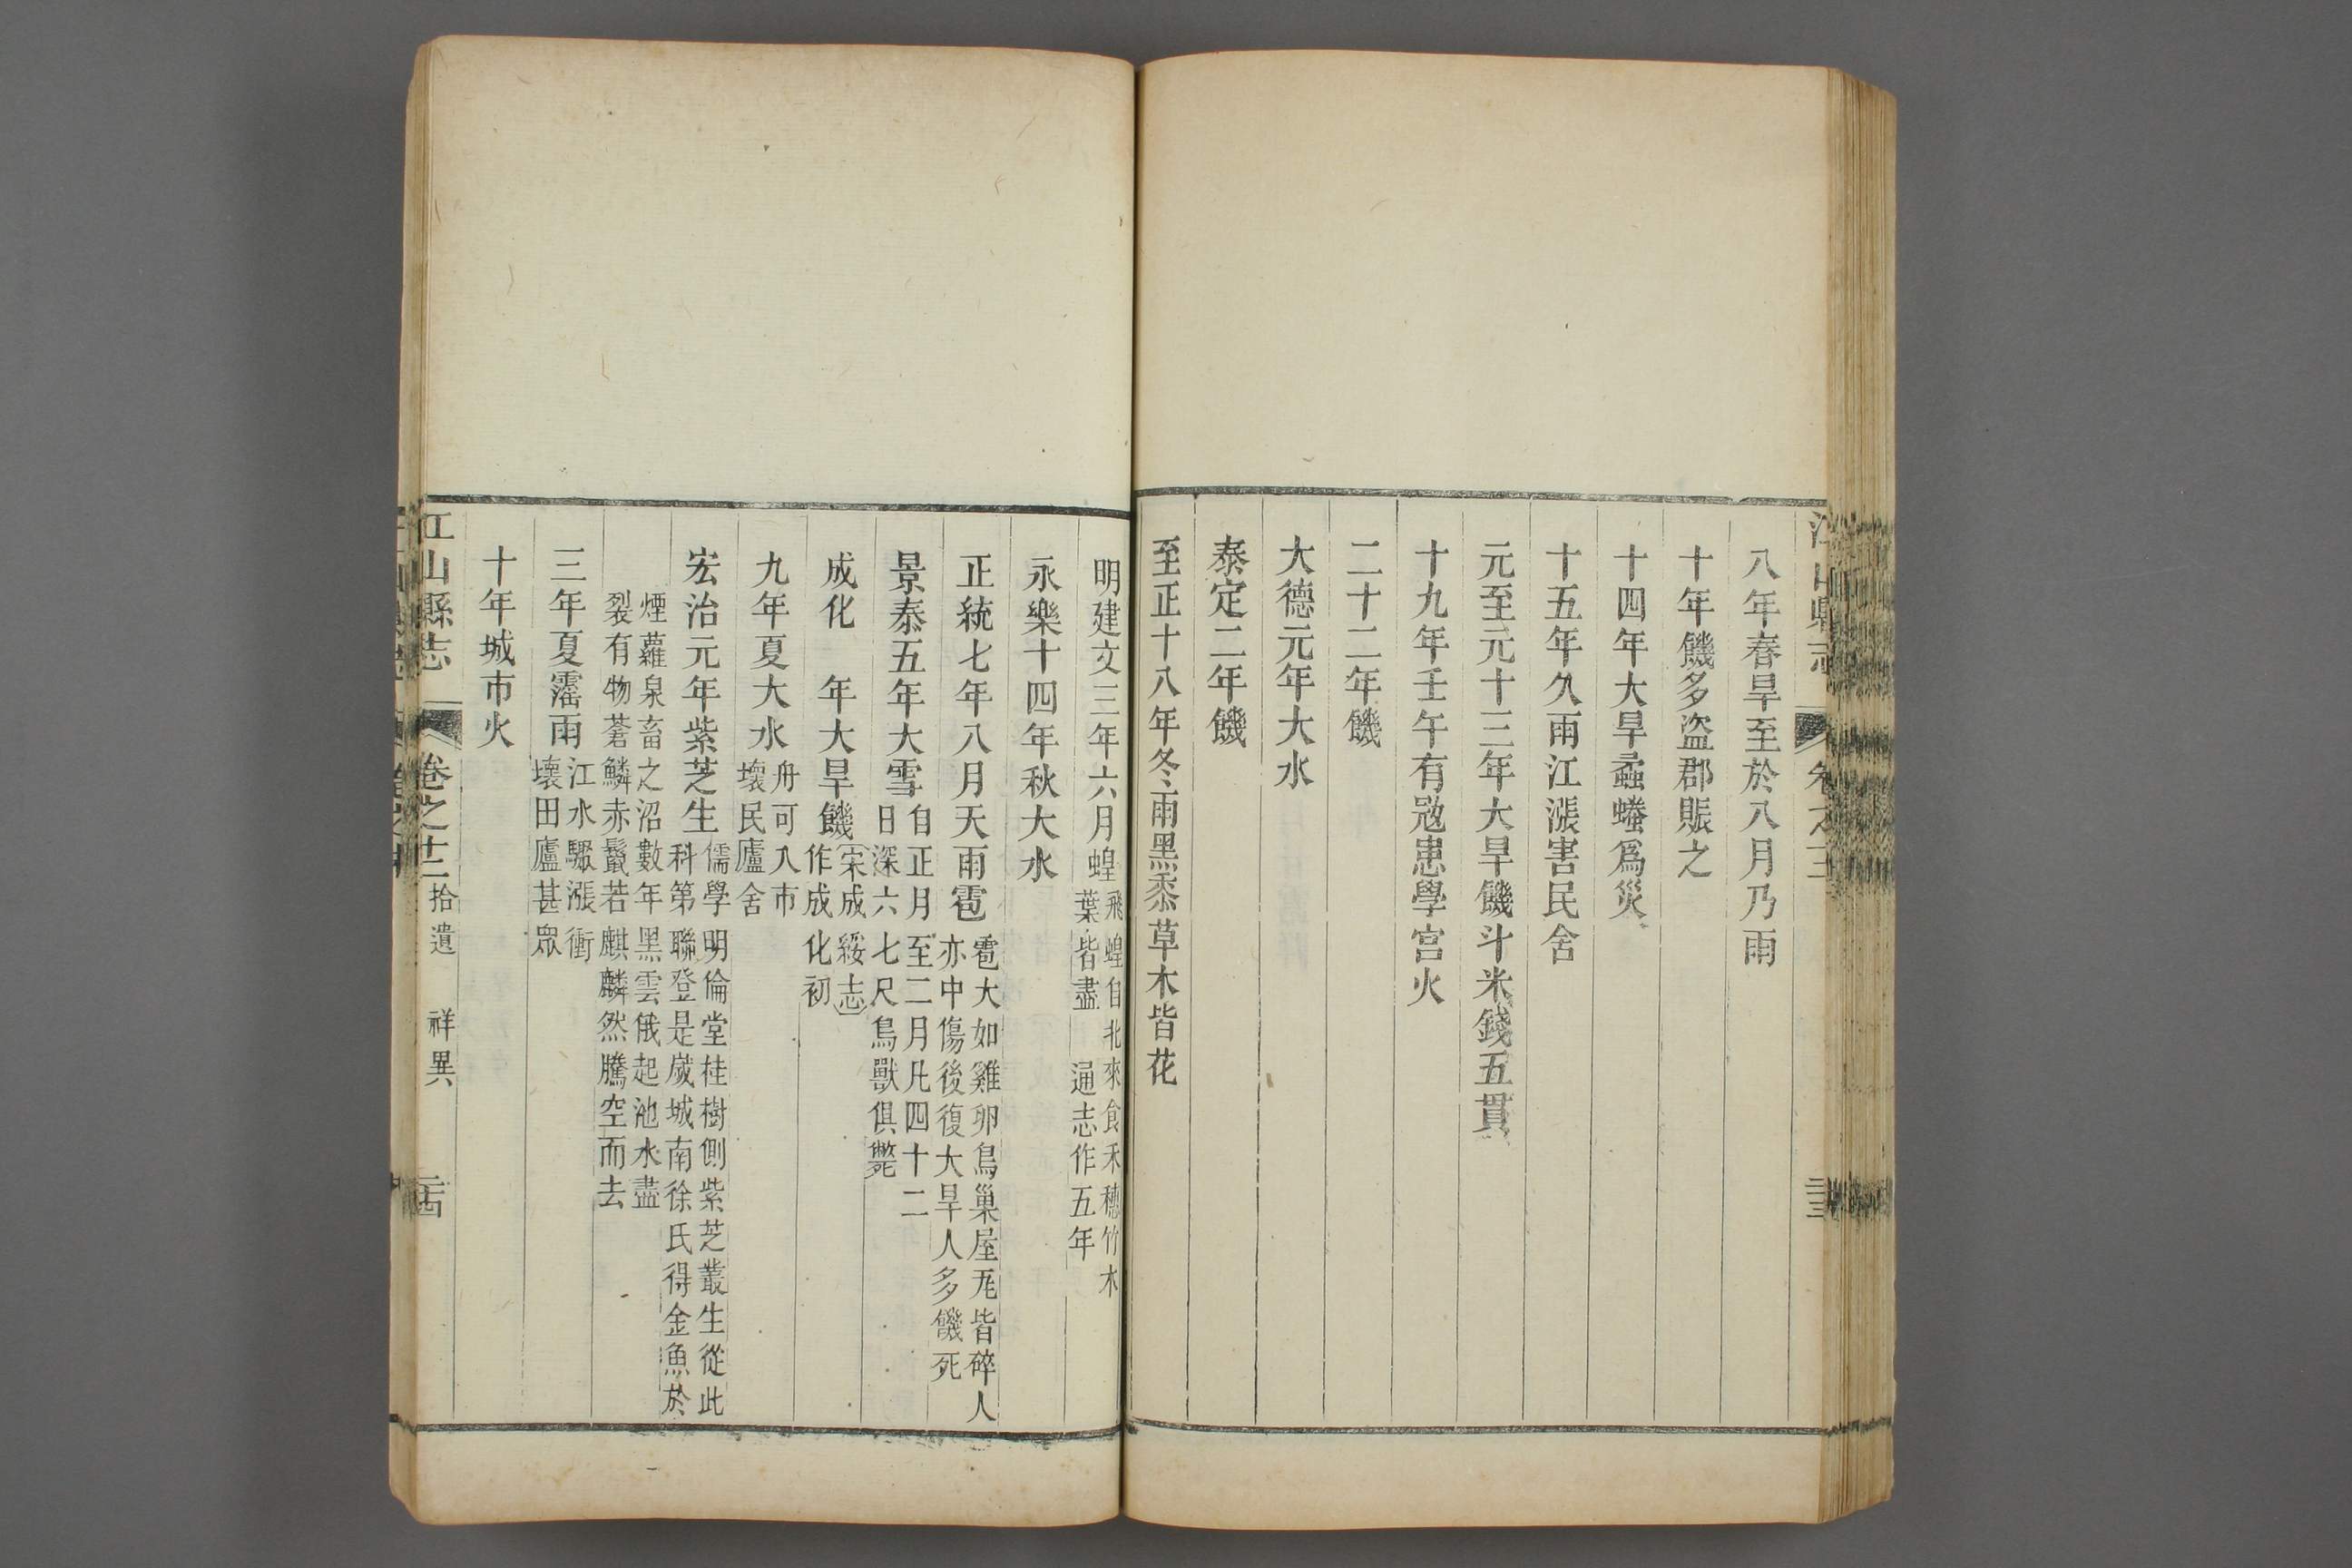 八年春旱至於八月乃雨
十年饑多盜郡賑之
十四年大旱螽蟓爲災
十五年久雨江漲害民舍
元至元十三年大旱饑斗米錢五貫
十九年壬午有寇患學宮火
二十二年饑
大德元年大水
泰定二年饑
至正十八年冬雨黑黍草木皆花
明建文三年六月蝗
飛蝗自北來食禾穗竹木
葉皆盡　通志作五年
永樂十四年秋大水
正統七年八月天雨雹
雹大如雞卵鳥巢屋瓦皆碎人
亦中傷後復大旱人多饑死
景泰五年大雪
自正月至二月凡四十二
日深六七尺鳥獸俱斃
成化　年大旱饑
宋成綏志
作成化初
九年夏大水
舟可入市
壞民廬舍
宏治元年紫芝生
儒學明倫堂桂樹側紫芝叢生從此
科第聯登是歲城南徐氏得金魚於
煙蘿泉畜之沼數年黑雲俄起池水盡
裂有物蒼鱗赤鬣若麒麟然騰空而去
三年夏霪雨
江水驟漲衝
壞田廬甚眾
十年城市火
江山縣志　卷之十二　拾遺　祥異　二十四